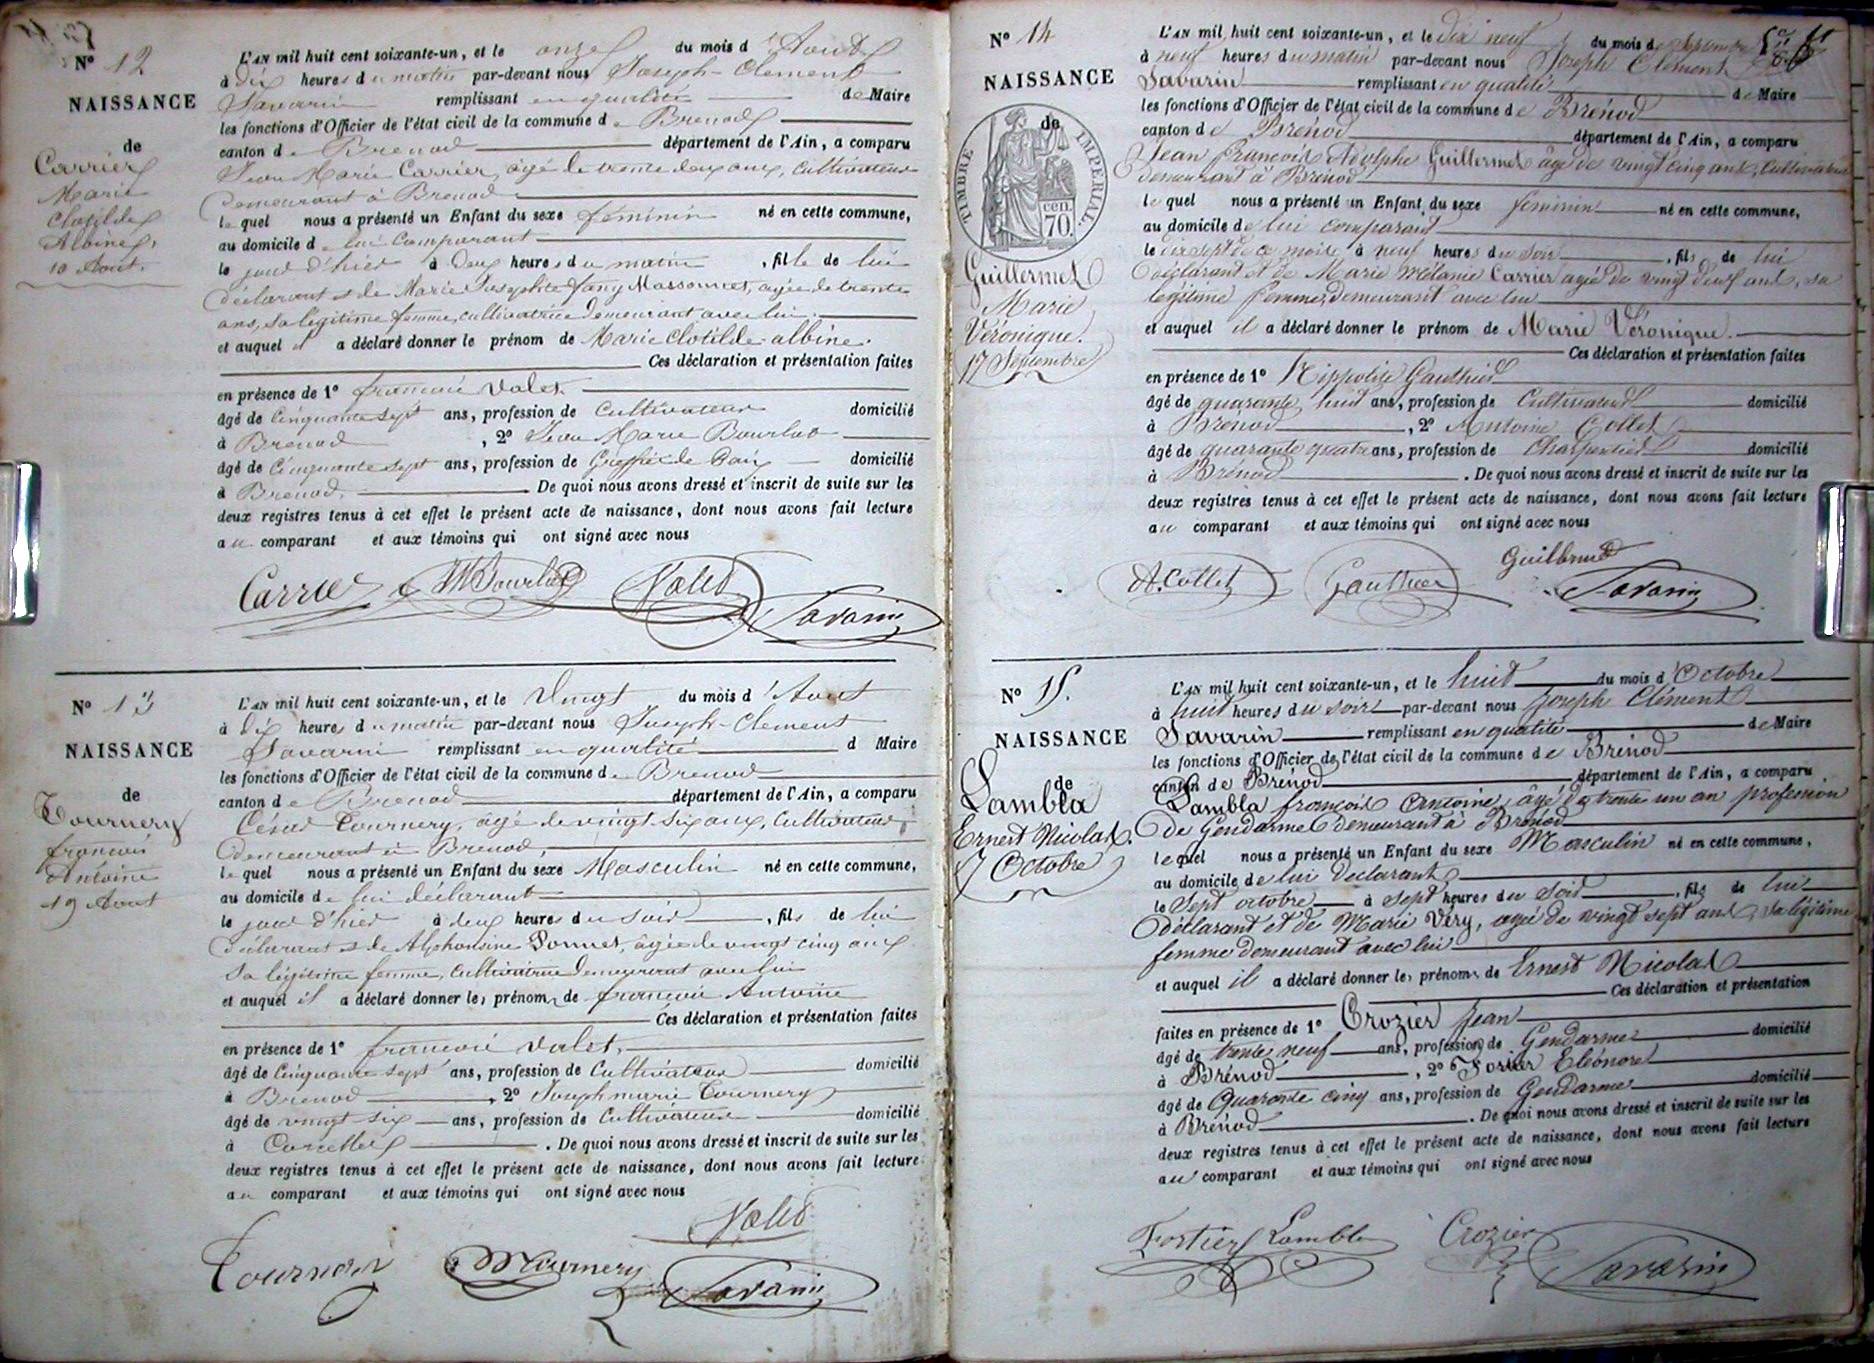 Nº 12
NAISSANCE
de
Carrier
Marie
Clotilde
Albine,
10 Aout.
L'AN mil huit cent soixante-un, et le onze du mois d'Aout
à dix heures du matin par-devant nous Joseph-Clement
Savarin remplissant en qualité de Maire
les fonctions d'Officier de l'état civil de la commune de Brenod
canton de Brenod département de l'Ain, a comparu
Jean Marie Carrier, âgé de trente deux ans, cultivateur
demeurant à Brenod
lequel nous a présenté un Enfant du sexe féminin né en cette commune,
au domicile de lui comparant
le jour d'hier à deux heures du matin, fille de lui
déclarant et de Marie Josephte fany Massonnet, agée de trente
ans, sa légitime femme, cultivatrice demeurant avec lui.
et auquel il a déclaré donner le prénom de Marie Clotilde albine.
Ces déclaration et présentation faites
en présence de 1º francois Valet.
âgé de Cinquante sept ans, profession de Cultivateur domicilié
à Brenod, 2º Jean Marie Bourbat
âgé de Cinquante sept ans, profession de Greffier de Paix domicilié
à Brenod. De quoi nous avons dressé et inscrit de suite sur les
deux registres tenus à cet effet le présent acte de naissance, dont nous avons fait lecture
au comparant et aux témoins qui ont signé avec nous
Carrier Valet
Savarin
Nº 13
NAISSANCE
de
Tournery
francois
Antoine
19 Aout
L'AN mil huit cent soixante-un, et le Vingt du mois d'Aout
à dix heures du matin par-devant nous Joseph-Clement
Savarin remplissant en qualité d Maire
les fonctions d'Officier de l'état civil de la commune de Brenod
canton de Brenod département de l'Ain, a comparu
César Tournery, agé de vingt six ans, Cultivateur
demeurant à Brenod,
lequel nous a présenté un Enfant du sexe Masculin né en cette commune,
au domicile de lui déclarant
le jour d'hier à deux heures du soir, fils de lui
déclarant et de Alphonsine Ponnet, âgée de vingt cinq ans
sa légitime femme, cultivatrice demeurant avec lui
et auquel il a déclaré donner les prénoms de francois Antoine
Ces déclaration et présentation faites
en présence de 1º francois Valet.
âgé de Cinquante sept ans, profession de Cultivateur domicilié
à Brenod, 2º Joseph marie Tournery
âgé de vingt six ans, profession de Cultivateur domicilié
à Corcelles. De quoi nous avons dressé et inscrit de suite sur les
deux registres tenus à cet effet le présent acte de naissance, dont nous avons fait lecture
au comparant et aux témoins qui ont signé avec nous
Valet
Tournery Tournery Savarin
Nº 14
NAISSANCE
de
TIMBRE IMPERIAL
70. cen
Guillermet
Marie
Véronique.
17 Septembre
L'AN mil huit cent soixante-un, et le dix neuf du mois de Septembre
à neuf heures du matin par-devant nous Joseph Clément
Savarin remplissant en qualité de Maire
les fonctions d'Officier de l'état civil de la commune de Brénod
canton de Brénod département de l'Ain, a comparu
Jean françois Adolphe Guillermet âgé de vingt cinq ans, Cultivateur
demeurant à Brénod
lequel nous a présenté un Enfant du sexe feminin né en cette commune,
au domicile de lui comparant
le dix sept de ce mois à neuf heures du soir, fils de lui
déclarant et de Marie Mélanie Carrier agée de vingt deux ans, sa
légitime femme, demeurant avec lui
et auquel il a déclaré donner le prénom de Marie Véronique.
Ces déclaration et présentation faites
en présence de 1º Hippolite Gauthier
âgé de quarante huit ans, profession de Cultivateur domicilié
à Brénod, 2º Antoine Collet
âgé de quarante quatre ans, profession de Charpentier domicilié
à Brénod. De quoi nous avons dressé et inscrit de suite sur les
deux registres tenus à cet effet le présent acte de naissance, dont nous avons fait lecture
au comparant et aux témoins qui ont signé avec nous
A. Collet Gauthier Guillermet
Savarin
Nº 15.
NAISSANCE
de
Lambla
Ernest Nicolas.
7 Octobre
L'AN mil huit cent soixante-un, et le huit du mois d'Octobre
à huit heures du soir par-devant nous Joseph Clément
Savarin remplissant en qualité de Maire
les fonctions d'Officier de l'état civil de la commune de Brénod
canton de Brénod département de l'Ain, a comparu
Lambla françois Antoine, âgé de trente un an profession
de Gendarme demeurant à Brénod
lequel nous a présenté un Enfant du sexe Masculin né en cette commune,
au domicile de lui declarant
le Sept octobre à sept heures du soir, fils de lui
déclarant et de Marie Véry, agée de vingt sept ans, sa légitime
femme demeurant avec lui
et auquel il a déclaré donner les prénoms de Ernest Nicolas
Ces déclaration et présentation
faites en présence de 1º Crozier Jean
âgé de trente neuf ans, profession de Gendarme domicilié
à Brénod, 2º Eléonore
âgé de Quarante cinq ans, profession de Gendarme domicilié
à Brénod. De quoi nous avons dressé et inscrit de suite sur les
deux registres tenus à cet effet le présent acte de naissance, dont nous avons fait lecture
au comparant et aux témoins qui ont signé avec nous
Fortier Lambla Crozier Savarin